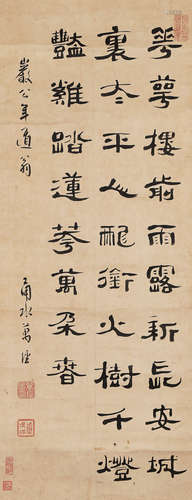 華萼樓前雨露新長安城
裏太平人龍銜火樹千燈
豔雞踏蓮華萬朵春
巖公年道翁
甬水萬經